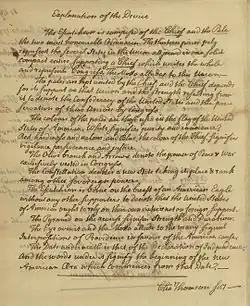 Explanation of the Device
The Escutcheon is composed of the Chief and the Pale
the two most honourable Ordinaries. The thirteen pieces paly
represent the several States in the Union all joined in one solid
compact entire supporting a Chief which unites the whole
and represents Congress. The Motto alludes to this Union.
The pales are kept united by the Chief and the Chief depends
for its support on that union and the strength resulting from
it to denote the Confederacy of the United States and the pre-
servation of their Union by Congress.
The colours of the pales are those used in the flag of the United
States of America. White signifies purity and innocence;
Red, hardiness and valour and Blue, the colour of the Chief signifies
vigilance perseverance and justice.
The Olive Branch and Arrows denote the power of Peace & War
exclusively vested in Congress.
The Constellation denotes a new State taking its place & rank
among other sovereign powers.
The Escutcheon is borne on the breast of an American Eagle
without any other supporters to denote that the United States
of America ought to rely on their own
The Pyramid on the reverse signifies Strength and Duration.
The Eye over it and the Motto allude to the many signal
Interpositions of Providence in favour of the American Cause.
The Date underneath is that of the Declaration of Independence
and the words under it signify the beginning of the new
American Æra which commences from that Date.